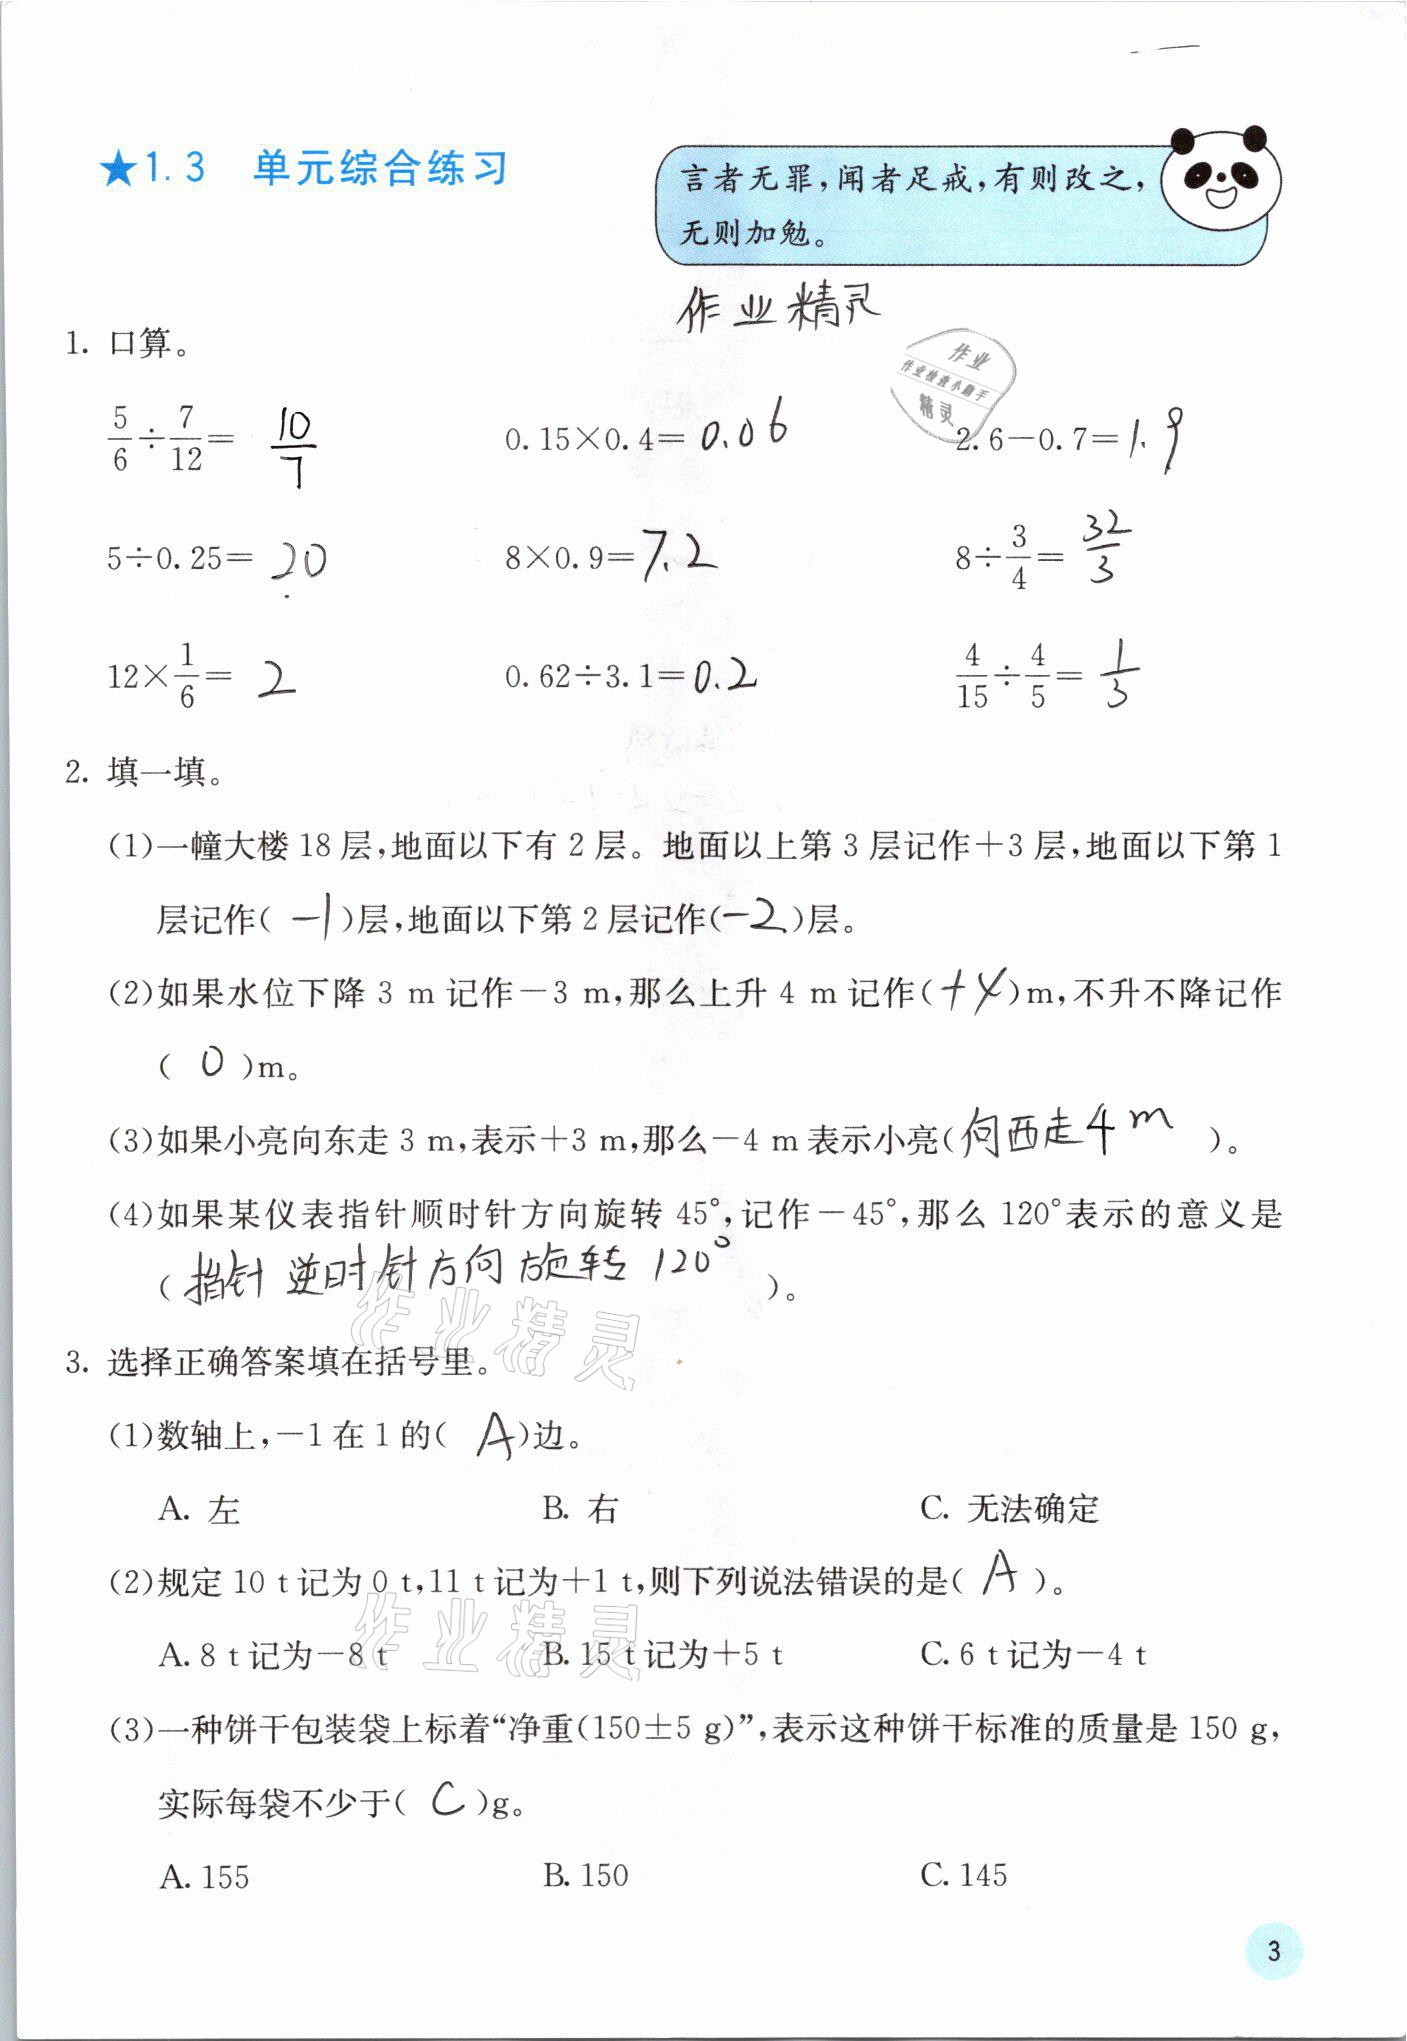 ★1.3 单元综合练习
言者无罪,闻者足戒,有则改之,
无则加勉。
作业精灵
作业
作业检查小助手
精灵
1. 口算。
5/6÷7/12= 10/7 0.15×0.4=0.06 2.6-0.7=1.9
5÷0.25= 20 8×0.9=7.2 8÷3/4= 32/3
12×1/6= 2 0.62÷3.1=0.2 4/15÷4/5= 1/3
2. 填一填。
(1)一幢大楼18层,地面以下有2层。地面以上第3层记作+3层,地面以下第1
层记作( -1 )层,地面以下第2层记作( -2 )层。
(2)如果水位下降 3 m 记作-3 m,那么上升 4 m 记作( +4 )m,不升不降记作
( 0 )m。
(3)如果小亮向东走 3 m,表示+3 m,那么-4 m 表示小亮( 向西走4m )。
(4)如果某仪表指针顺时针方向旋转 45°,记作-45°,那么 120°表示的意义是
( 指针逆时针方向旋转120° )。
作业精灵
3. 选择正确答案填在括号里。
(1)数轴上,-1在1的( A )边。
A. 左 B. 右 C. 无法确定
(2)规定10 t记为0 t,11 t记为+1 t,则下列说法错误的是( A )。
作业精灵
A. 8 t记为-8 t B. 15 t记为+5 t C. 6 t记为-4 t
(3)一种饼干包装袋上标着“净重(150±5 g)”,表示这种饼干标准的质量是150 g,
实际每袋不少于( C )g。
A. 155 B. 150 C. 145
3